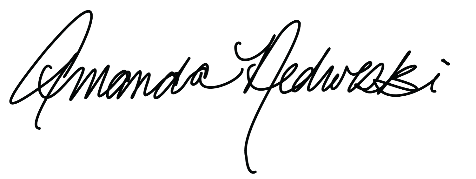 Amanda Nedweski